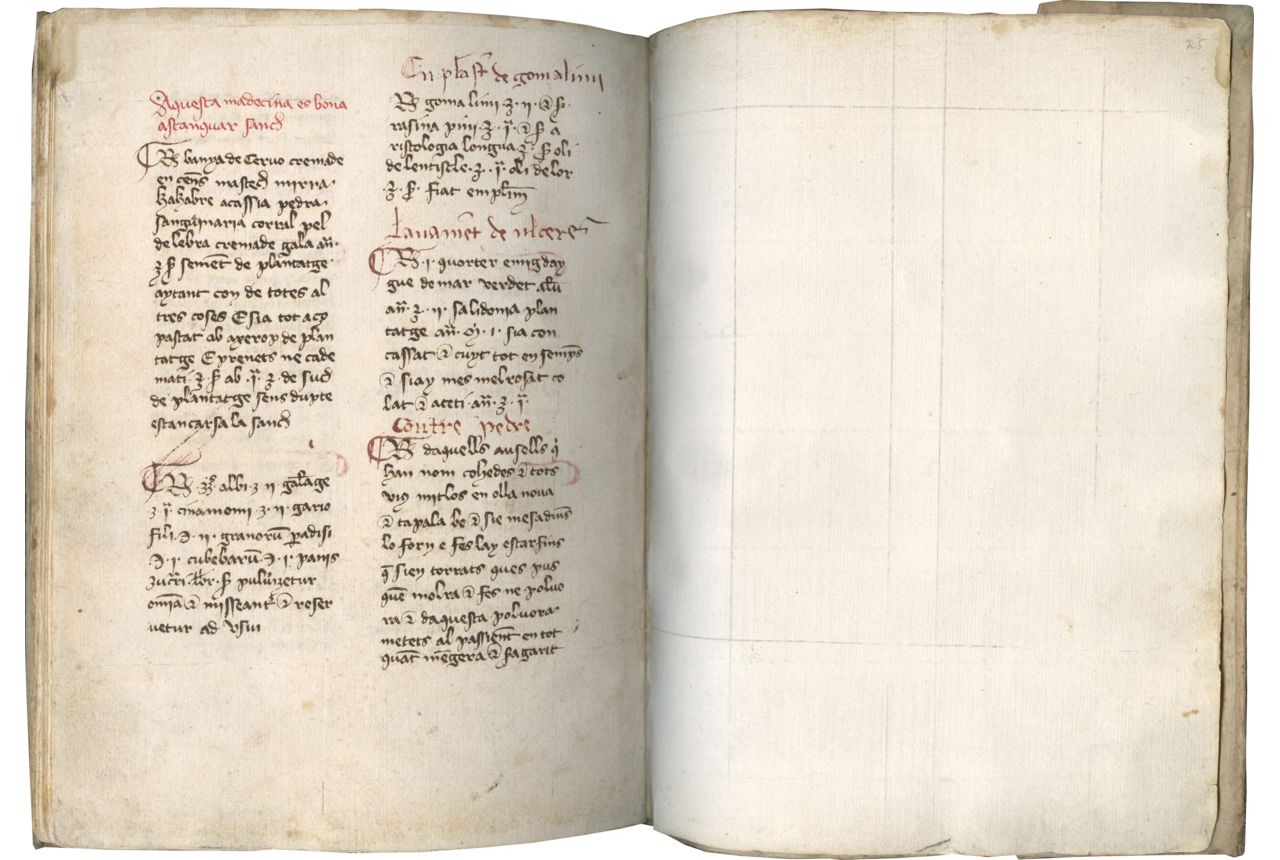 Aquesta madecina es bona
astanquar sanch
R banya de Cervo cremade
en cens mastech mirra.
Kakabre acassia pedra.
sanguinaria corrall pel
de lebra cremade gala an.
ʒ ß sement de plantatge.
aytant con de totes al
tres coses E sia tot aço
pastat ab axerop de plan
tatge E prenets ne cade
mati ʒ. ß ab .j. ʒ. de such
de plantatge sens dupte
estancarsa la sanch
R albi ʒ ii galage
ʒ j. cinamomi ʒ. ii. gario
fili ii. granorum paradisi
.j. cubebarum .j. panis
zucri ß pulverizetur
omnia & misseantur & reser
vetur ad usum
En plastre de goma limi
R goma limi ʒ. ii. & ß.
rasina pini ʒ. j. & ß a
ristologia longua ʒ. ß oli
de lentiscle. ʒ. j. oli de lor
.ʒ. ß. fiat emplastrum
Lavament de ulceres
R .i. quorter emig day
gue de mar verdet alum
an. ʒ. ii. salidonia plan
tatge an. m. i. sia con
cassat & cuyt tot en semps
& siay mes mel rosat co
lat & aceti an. ʒ. j.
Contre pedre
R daquells ausells qui
han nom cohedes & tots
vius mitlos en olla nova
& tapala be & sie mesa dins
lo forn e fes lay estar fins
que sien torrats ques pus
quen molra & fes ne polvo
ra & daquesta polvora.
metets al passient en tot
quant mengera & sa garit
25